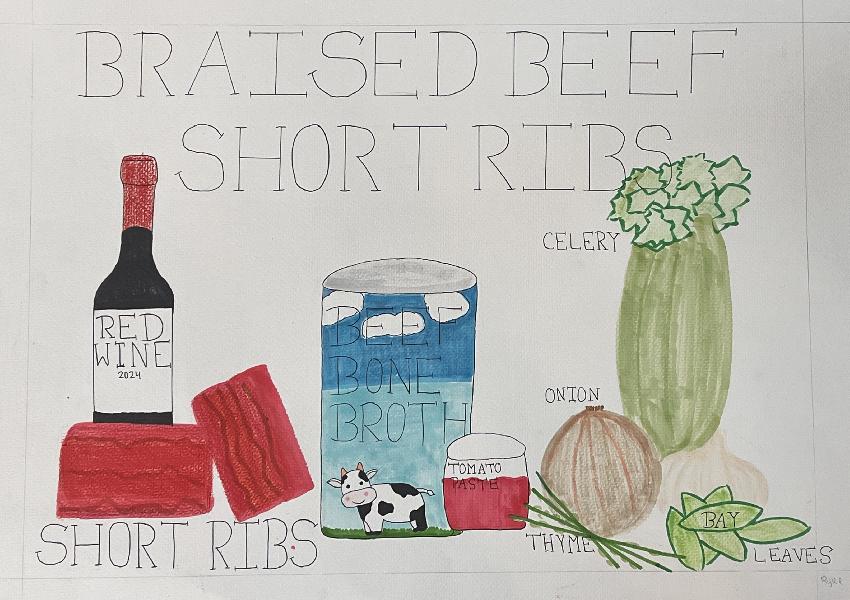 BRAISED BEEF
SHORT RIBS
CELERY
RED
WINE
2024
BEEF
BONE
BROTH
ONION
TOMATO
PASTE
SHORT RIBS
THYME
BAY
LEAVES